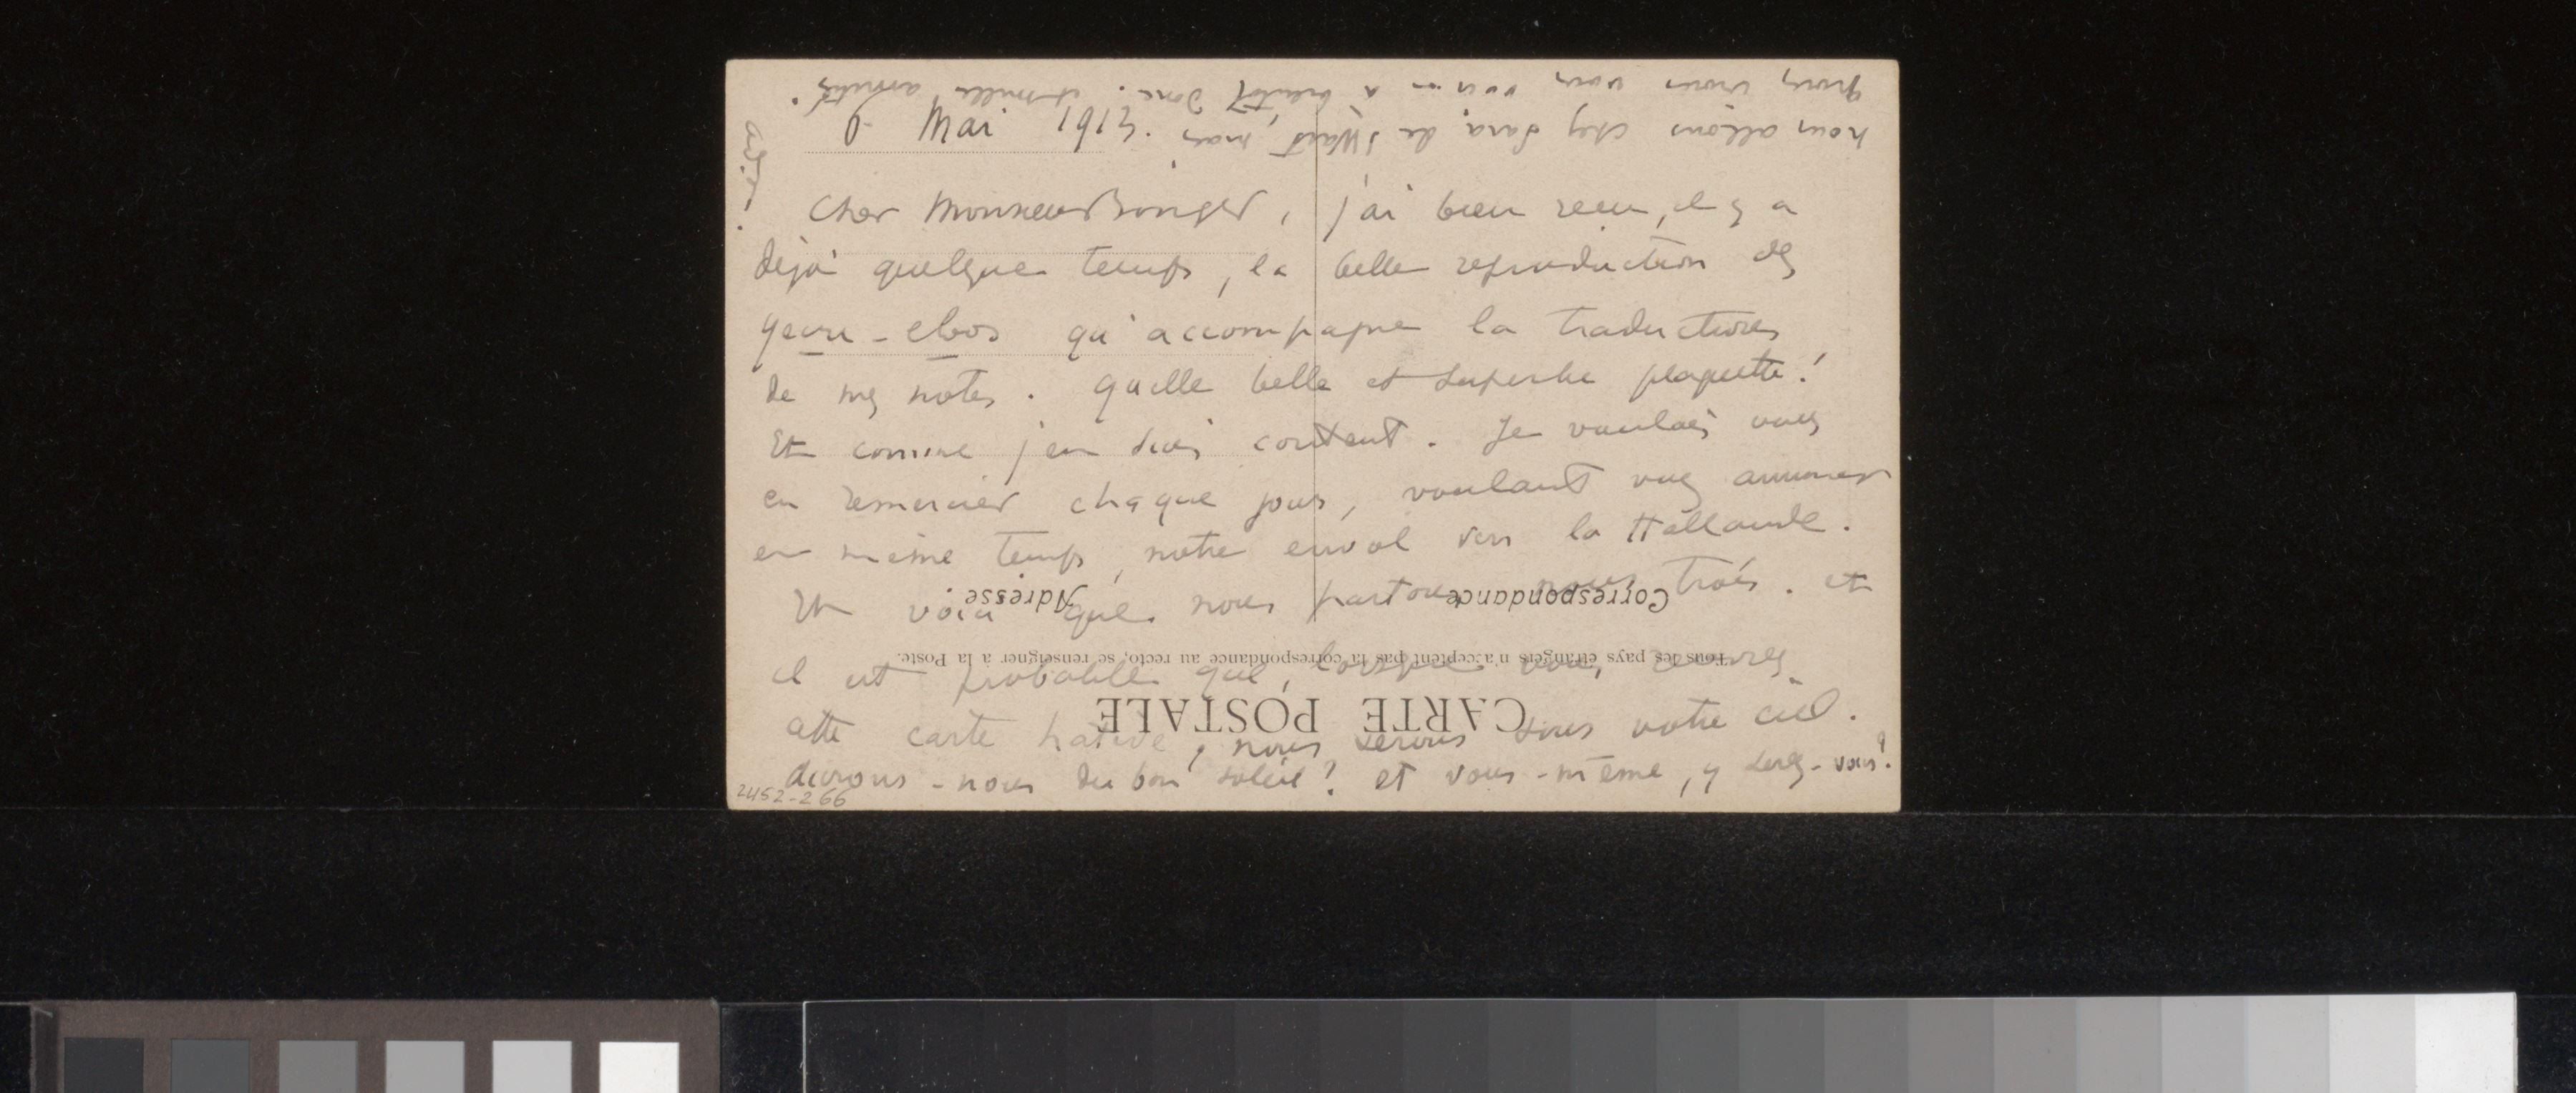 6 Mai 1913.
Cher Monsieur Bonger, j'ai bien reçu, il y a
déjà quelque temps, la belle reproduction des
yeux-clos qui accompagne la traduction
de mes notes. Quelle belle et superbe plaquette!
Et comme j'en suis content. Je voulais vous
en remercier chaque jour, voulant vous annoncer
en même temps, notre envol vers la Hollande.
Et voici que nous partons nous trois. et
il est probable que, lorsque vous
cette carte hâtive, nous serons sous votre ciel.
Aurons-nous du bon soleil? et vous-même, y serez-vous?
nous allons chez Sara de Swart, mais
nous irons vous voir à bientôt donc. et mille amitiés.
Adresse
Correspondance
Tous les pays étrangers n'acceptent pas la correspondance au recto, se renseigner à la Poste.
CARTE POSTALE
2452-266